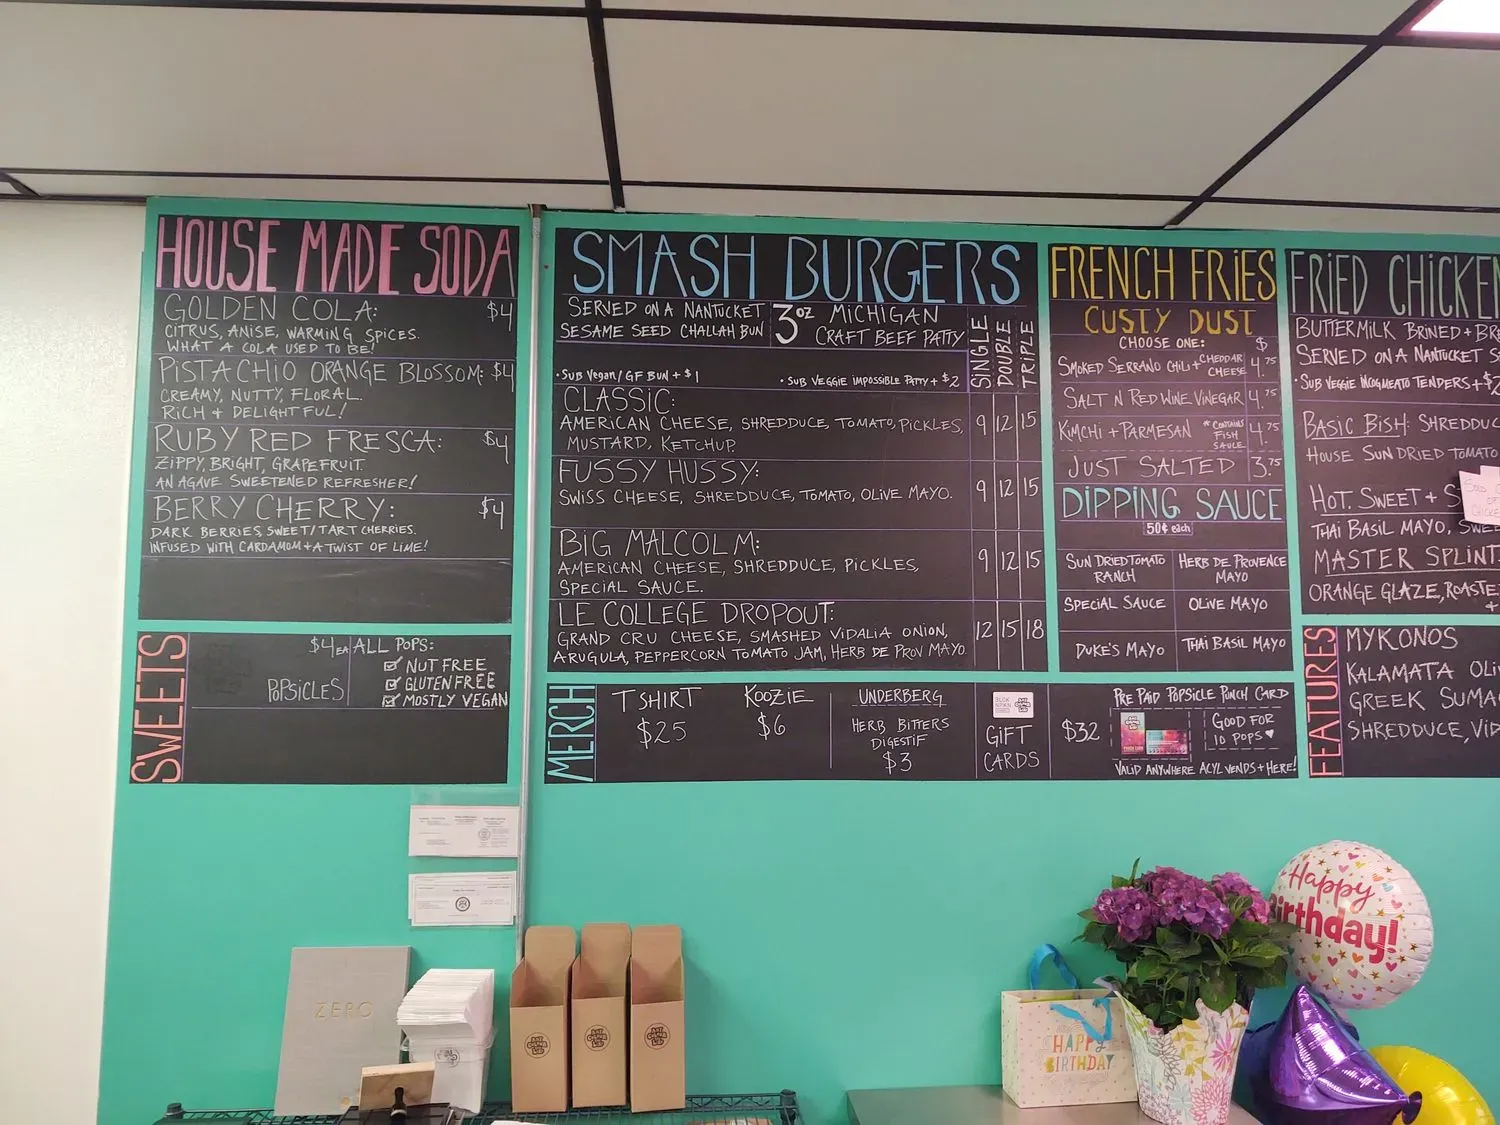 HOUSE MADE SODA
GOLDEN COLA: $4
CITRUS, ANISE, WARMING SPICES.
WHAT A COLA USED TO BE!
PISTACHIO ORANGE BLOSSOM: $4
CREAMY, NUTTY, FLORAL.
RICH + DELIGHTFUL!
RUBY RED FRESCA: $4
ZIPPY, BRIGHT, GRAPEFRUIT.
AN AGAVE SWEETENED REFRESHER!
BERRY CHERRY: $4
DARK BERRIES, SWEET/TART CHERRIES.
INFUSED WITH CARDAMOM + A TWIST OF LIME!
SWEETS
$4 EA
POPSICLES
ALL POPS:
NUT FREE
GLUTEN FREE
MOSTLY VEGAN
SMASH BURGERS
SERVED ON A NANTUCKET
SESAME SEED CHALLAH BUN
3 OZ MICHIGAN
CRAFT BEEF PATTY
SINGLE
DOUBLE
TRIPLE
• SUB VEGAN/GF BUN + $1
• SUB VEGGIE IMPOSSIBLE PATTY + $2
CLASSIC:
AMERICAN CHEESE, SHREDDUCE, TOMATO, PICKLES, 9 12 15
MUSTARD, KETCHUP.
FUSSY HUSSY:
SWISS CHEESE, SHREDDUCE, TOMATO, OLIVE MAYO. 9 12 15
BIG MALCOLM:
AMERICAN CHEESE, SHREDDUCE, PICKLES, 9 12 15
SPECIAL SAUCE.
LE COLLEGE DROPOUT:
GRAND CRU CHEESE, SMASHED VIDALIA ONION, 12 15 18
ARUGULA, PEPPERCORN TOMATO JAM, HERB DE PROV MAYO.
MERCH
T SHIRT
$25
KOOZIE
$6
UNDERBERG
HERB BITTERS
DIGESTIF
$3
GIFT
CARDS
$32
PRE PAID POPSICLE PUNCH CARD
GOOD FOR
10 POPS ♥
VALID ANYWHERE ACYL VENDS + HERE!
FRENCH FRIES
CUSTY DUST
CHOOSE ONE: $
SMOKED SERRANO CHILI + CHEDDAR CHEESE 4.75
SALT N RED WINE VINEGAR 4.75
KIMCHI + PARMESAN *CONTAINS FISH SAUCE 4.75
JUST SALTED 3.75
DIPPING SAUCE
50¢ each
SUN DRIED TOMATO
RANCH
HERB DE PROVENCE
MAYO
SPECIAL SAUCE
OLIVE MAYO
DUKE'S MAYO
THAI BASIL MAYO
FRIED CHICKEN
BUTTERMILK BRINED + BR
SERVED ON A NANTUCKET S
• SUB VEGGIE INCOGMEATO TENDERS + $2
BASIC BISH: SHREDDUC
HOUSE SUN DRIED TOMATO
HOT. SWEET + S
THAI BASIL MAYO, SWE
MASTER SPLINT
ORANGE GLAZE, ROASTE
+
FEATURES
MYKONOS
KALAMATA OLI
GREEK SUMA
SHREDDUCE, VID
ZERO
Happy
Birthday!
HAPPY
BIRTHDAY